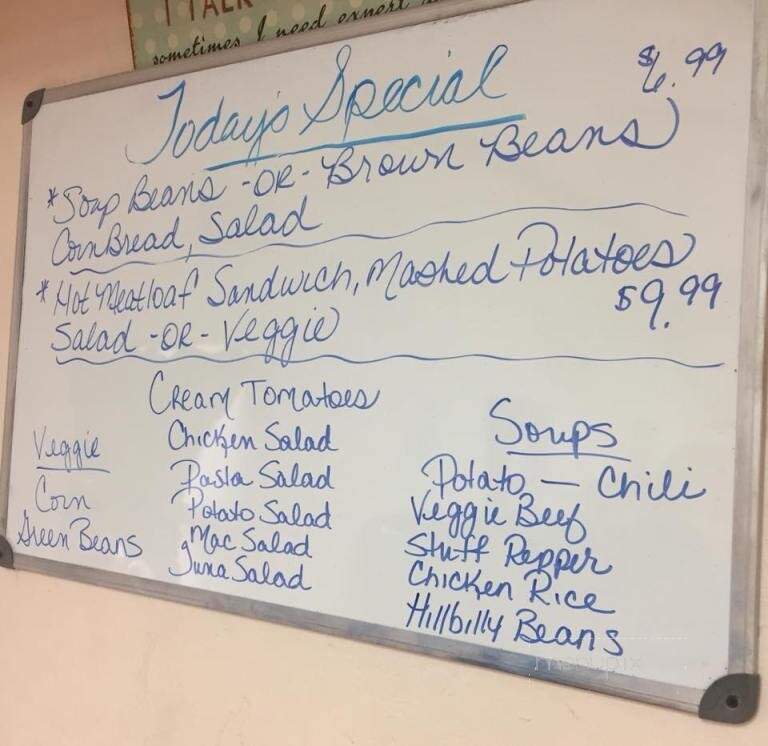 I TALK
sometimes I need expert
Today's Special
$6.99
*Soup Beans -OR- Brown Beans
CornBread, Salad
*Hot Meatloaf Sandwich, Mashed Potatoes
$9.99
Salad -OR- Veggie
Veggie
Corn
Green Beans
Cream Tomatoes
Chicken Salad
Pasta Salad
Potato Salad
Mac Salad
Tuna Salad
Soups
Potato — Chili
Veggie Beef
Stuff Pepper
Chicken Rice
Hillbilly Beans
menupix